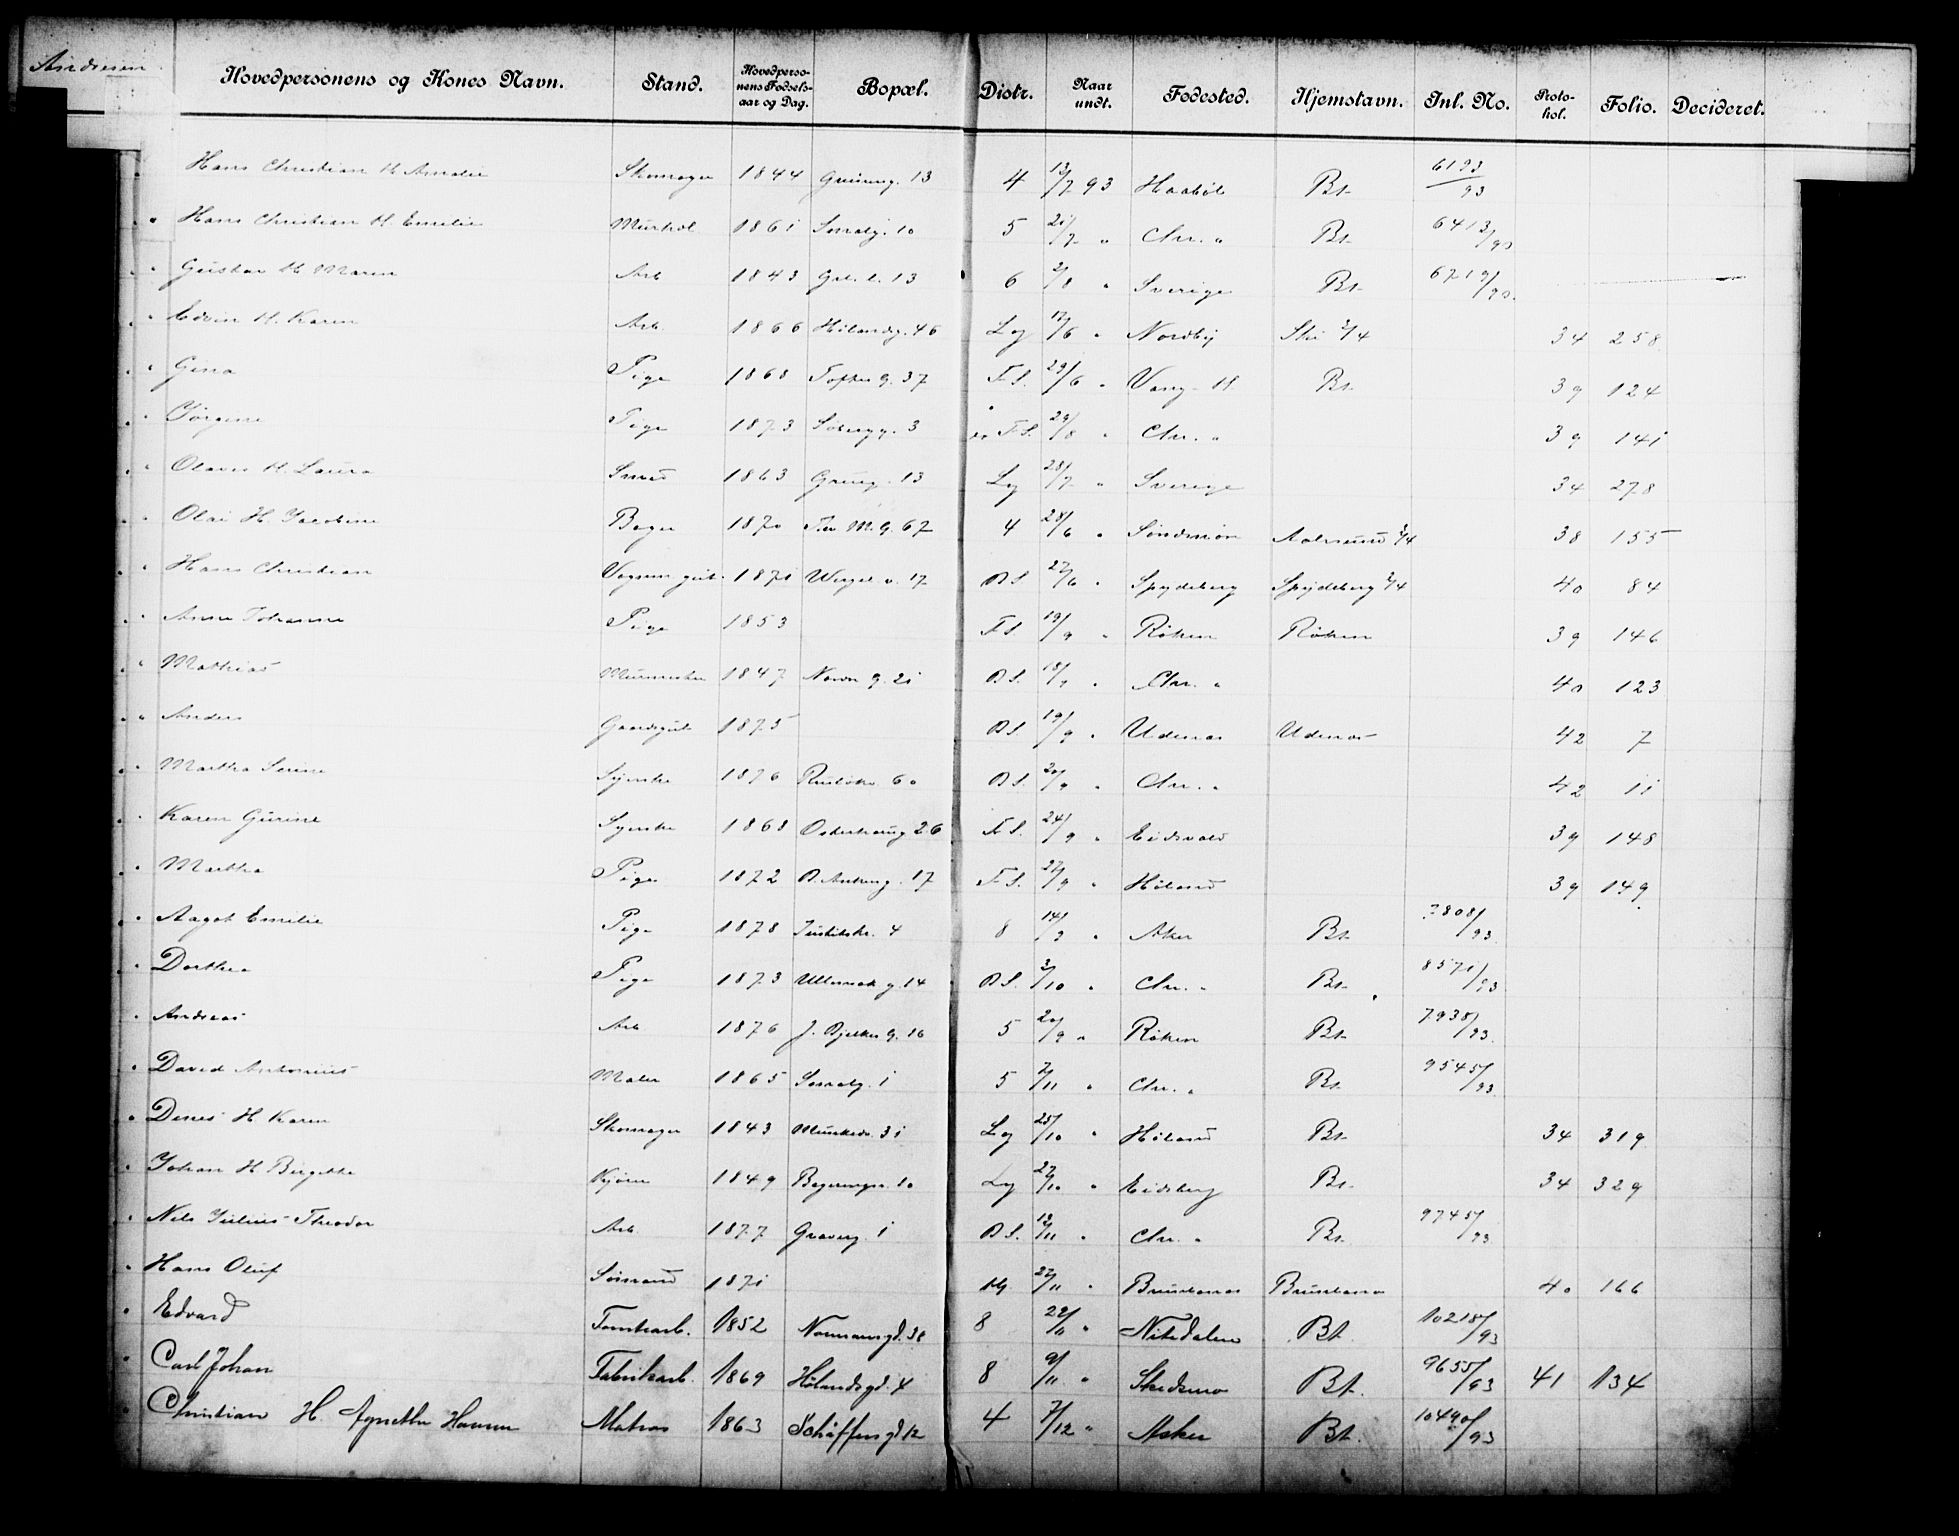 Andresen
Hovedpersonens og Kones Navn. Stand. Hovedperso-nens Fødsels-aar og Dag. Bopæl. Distr. Naar undt. Fødested. Hjemstavn. Inl. No. Proto-kol. Folio. Decideret.
Hans Christian H. Amalie Skomager 1844 Grüning. 13 4 12/7 93 Haabøl Bt. 6193/93
" Hans Christian H. Emilie Murhdl 1861 Smalg. 10 5 21/7 " Chr. a Bt. 6413/93
" Gustav H. Maren Arb. 1843 Grl. l. 13 6 2/8 " Sverige Bt. 6719/93
" Edvin H. Karen Arb. 1866 Hølandsg. 46 Lg 17/6 " Nordby Ski 2/4 34 258
" Gina Pige 1868 Toftes g. 37 F.S. 29/6 " Vang H. Bt. 39 124
" Jørgine Pige 1873 3 F.S. 29/8 " Chr. a 39 141
" Olavus H. Laura Smed 1863 Grüng. 13 Lg 28/7 " Sverige 34 278
" Olai H. Jacobine Bager 1870 Tor M. g. 67 4 28/6 " Søndmør Aalesund 2/4 38 155
" Hans Christian Vognm. gut. 1871 Wergel. v. 17 B.S. 27/6 " Spydeberg Spydeberg 2/4 40 84
" Anne Johanne Pige 1853 F.S. 19/9 " Røken Røken 39 146
" Mathias Murmester 1847 Norm g. 21 B.S. 18/9 " Chr. a 40 123
" Anders Gaardsgut 1875 B.S. 19/9 " Udenæs Udenæs 42 7
" Martha Serine Syerske 1876 Ruseløkv. 60 B.S. 20/9 " Chr. a 42 11
" Karen Gurine Syerske 1868 Osterhausg 26 F.S. 24/9 " Eidsvold 39 148
" Martha Pige 1872 B. Ankerg. 17 F.S. 27/9 " Høland 39 149
" Aagot Emilie Pige 1878 Justitstr. 4 8 14/9 " Aker Bt. 7808/93
" Dorthea Pige 1873 Ullevaals g. 14 B.S. 3/10 " Chr. a Bt. 8571/93
" Andreas Arb 1876 J. Bjelkes g. 16 5 20/9 " Røken Bt. 7938/93
" David Antonius Maler 1865 Smalg. 1 5 7/11 " Chr. a Bt. 9545/93
" Denes H. Karen Skomager 1843 Munkedv. 31 Lg 25/10 " Høland Bt. 34 319
" Johan H. Birgitte Kjører 1849 10 Lg 27/10 " Eidsberg Bt. 34 329
" Nils Julius Theodor Arb. 1877 Graverg. 1 B.S. 12/11 " Chr. a Bt. 9745/93
" Hans Oluf Sømand 1871 27/11 " Brunlanæs Brunlanæs 40 166
" Edvard Tomtearb. 1852 Normansgd. 38 8 22/11 " Nitedalen Bt. 10218/93
" Carl Johan Fabrikarb. 1869 Hølandsgd. 4 8 9/11 " Skedsmo Bt. 9655/93 41 134
" Christian H. Agnethe Hansen Matros 1863 Schäffersgd 12 4 7/12 " Asker Bt. 10490/93